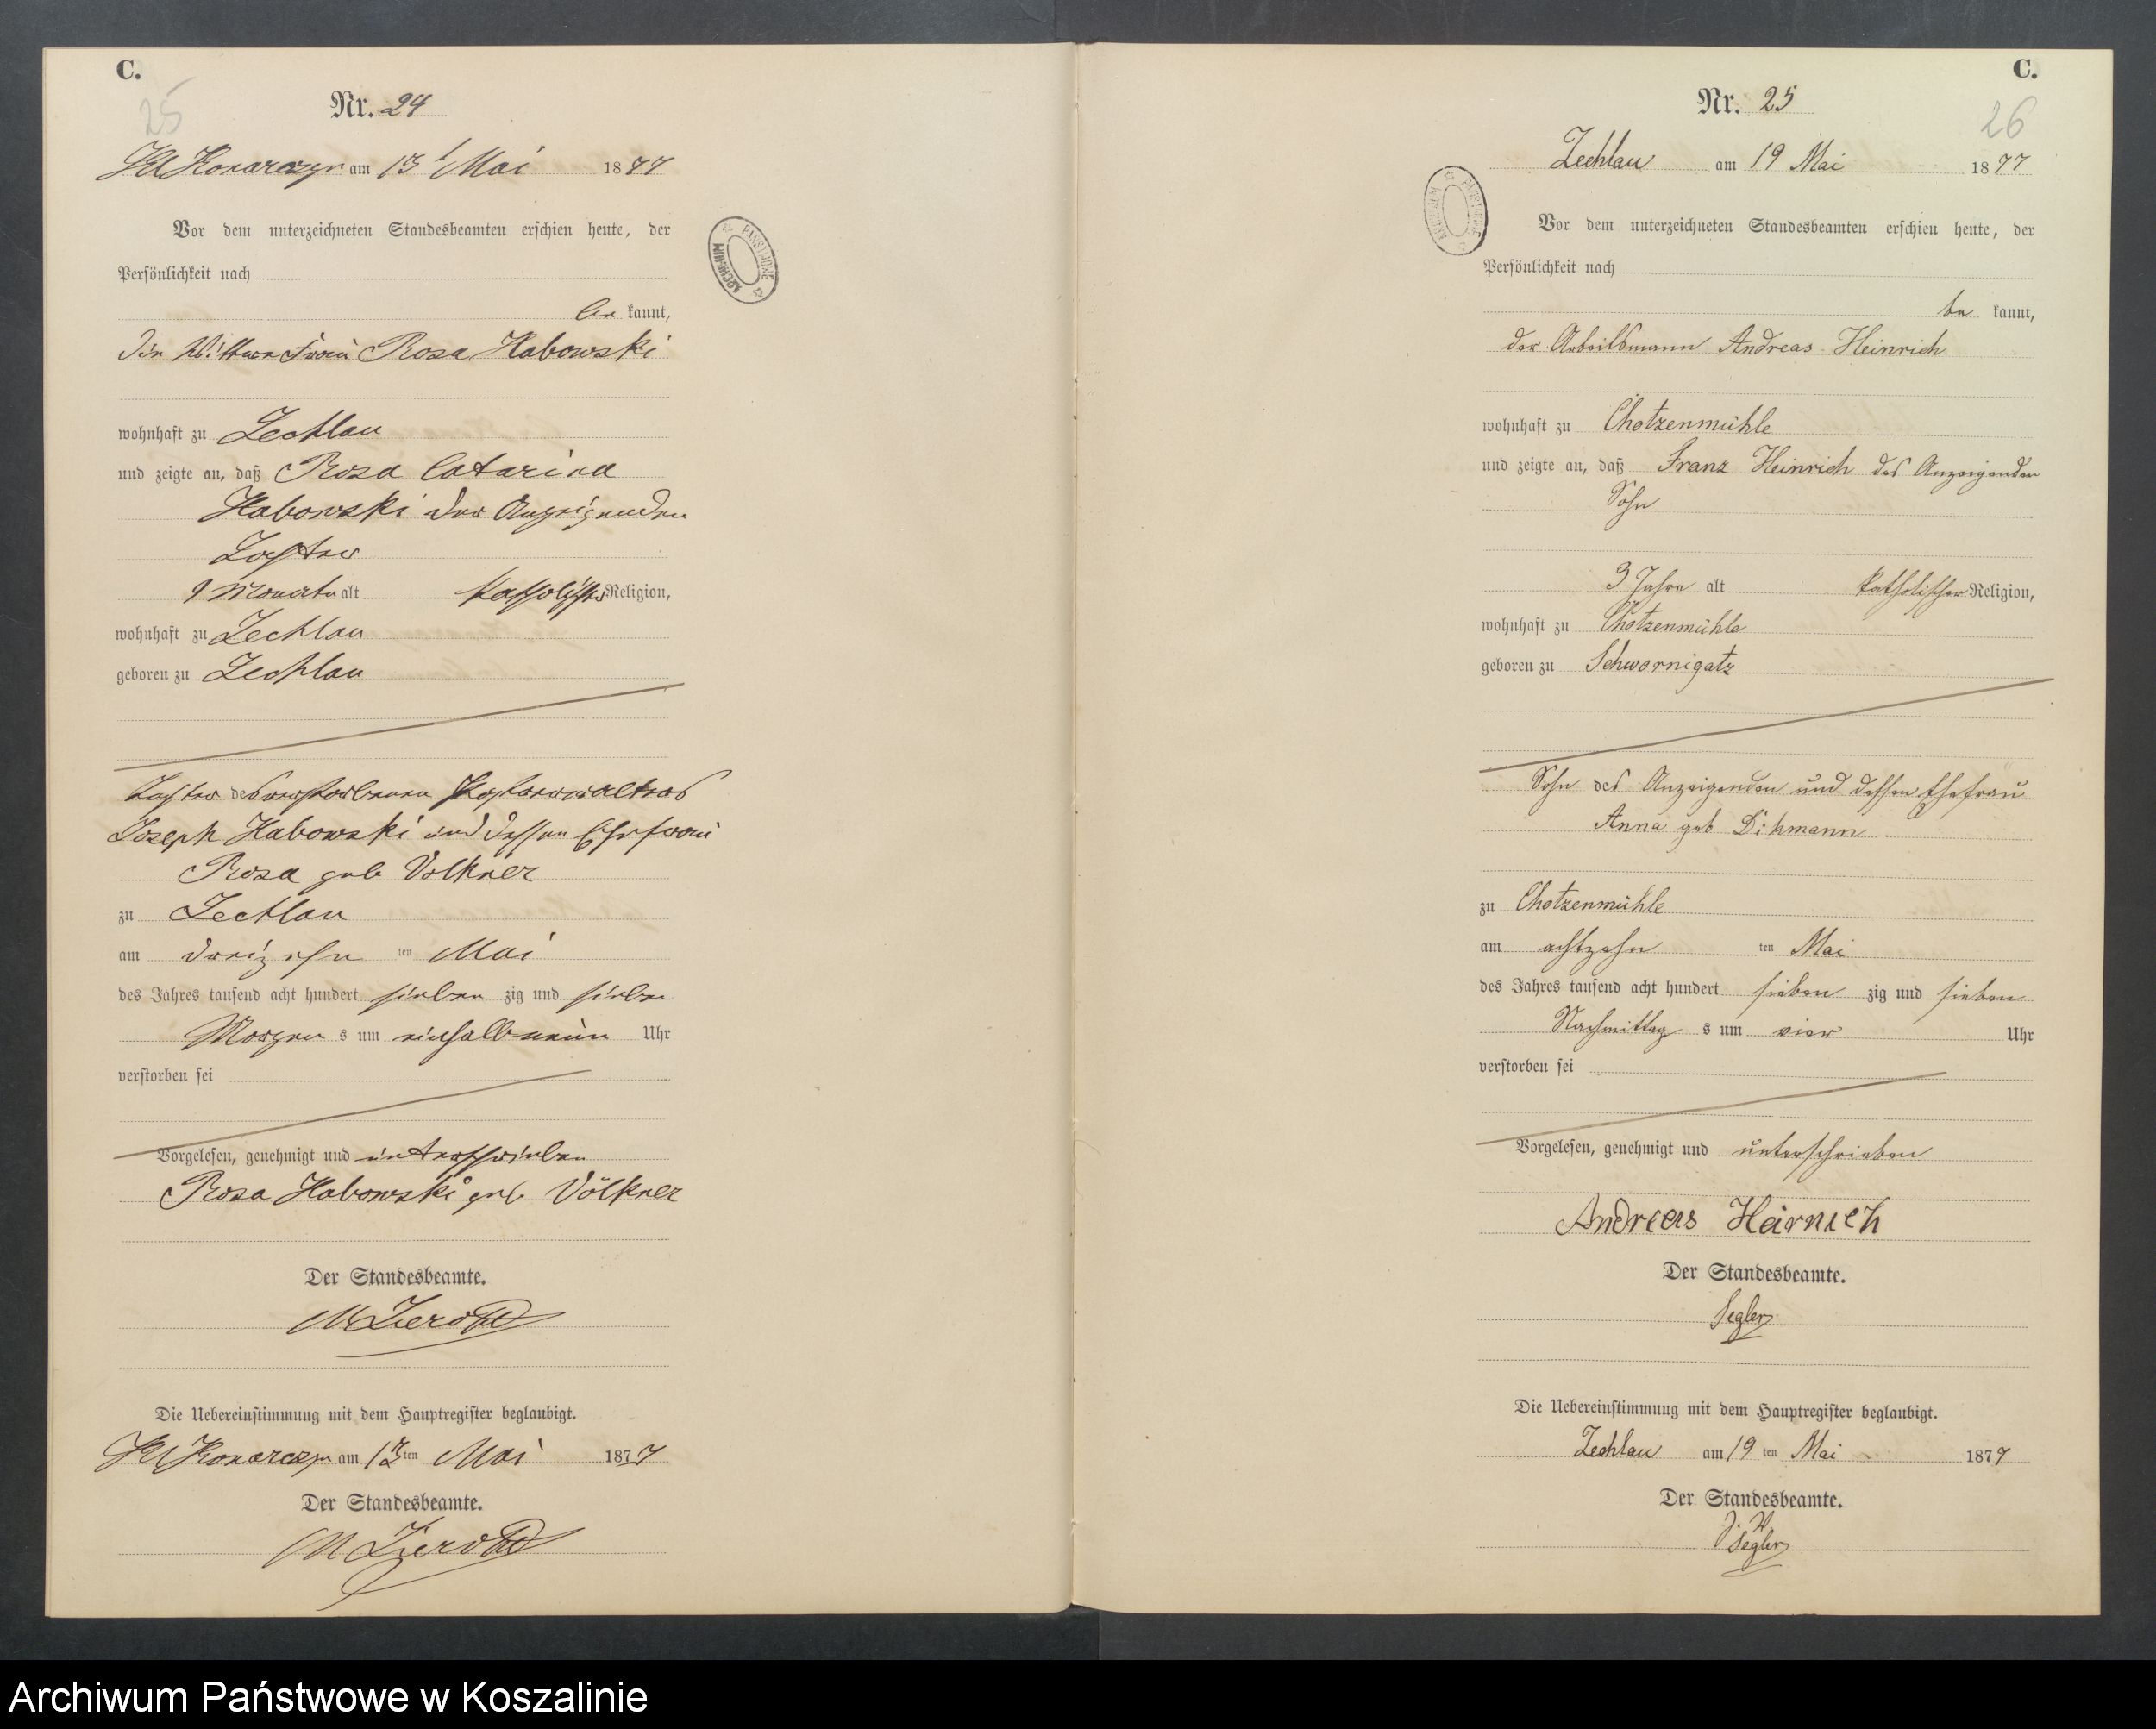 C.
25
Nr. 24
Kl Konarczyn am 13t Mai 1877
Vor dem unterzeichneten Standesbeamten erschien heute, der
Persönlichkeit nach
be kannt,
die Wittwe Frau Rosa Habowski
wohnhaft zu Zechlau
und zeigte an, daß Rosa Catarina
Habowski der Anzeigenden
Tochter
9 Monate alt katholischer Religion,
wohnhaft zu Zechlau
geboren zu Zechlau
Tochter des verstorbenen
Joseph Habowski und dessen Ehefrau
Rosa geb Volkner
zu Zechlau
am dreizehn ten Mai
des Jahres tausend acht hundert sieben zig und sieben
Morgen s um einhalb neun Uhr
verstorben sei
Vorgelesen, genehmigt und unterschrieben
Rosa Habowski geb Völkner
Der Standesbeamte.
Die Uebereinstimmung mit dem Hauptregister beglaubigt.
Kl Konarczyn am 13ten Mai 1877
Der Standesbeamte.
ARCHIWUM PAŃSTWOWE
C.
26
Nr. 25
Zechlau am 19 Mai 1877
Vor dem unterzeichneten Standesbeamten erschien heute, der
Persönlichkeit nach
be kannt,
der Arbeitsmann Andreas Heinrich
wohnhaft zu Chotzenmühle
und zeigte an, daß Franz Heinrich des Anzeigenden
Sohn
3 Jahre alt katholischer Religion,
wohnhaft zu Chotzenmühle
geboren zu Schwornigatz
Sohn des Anzeigenden und dessen Ehefrau
Anna geb Dikmann
zu Chotzenmühle
am achtzehn ten Mai
des Jahres tausend acht hundert sieben zig und sieben
Nachmittag s um vier Uhr
verstorben sei
Vorgelesen, genehmigt und unterschrieben
Andreas Heinrich
Der Standesbeamte.
Segler
Die Uebereinstimmung mit dem Hauptregister beglaubigt.
Zechlau am 19 ten Mai 1877
Der Standesbeamte.
J. V.
Segler
ARCHIWUM PAŃSTWOWE
Archiwum Państwowe w Koszalinie